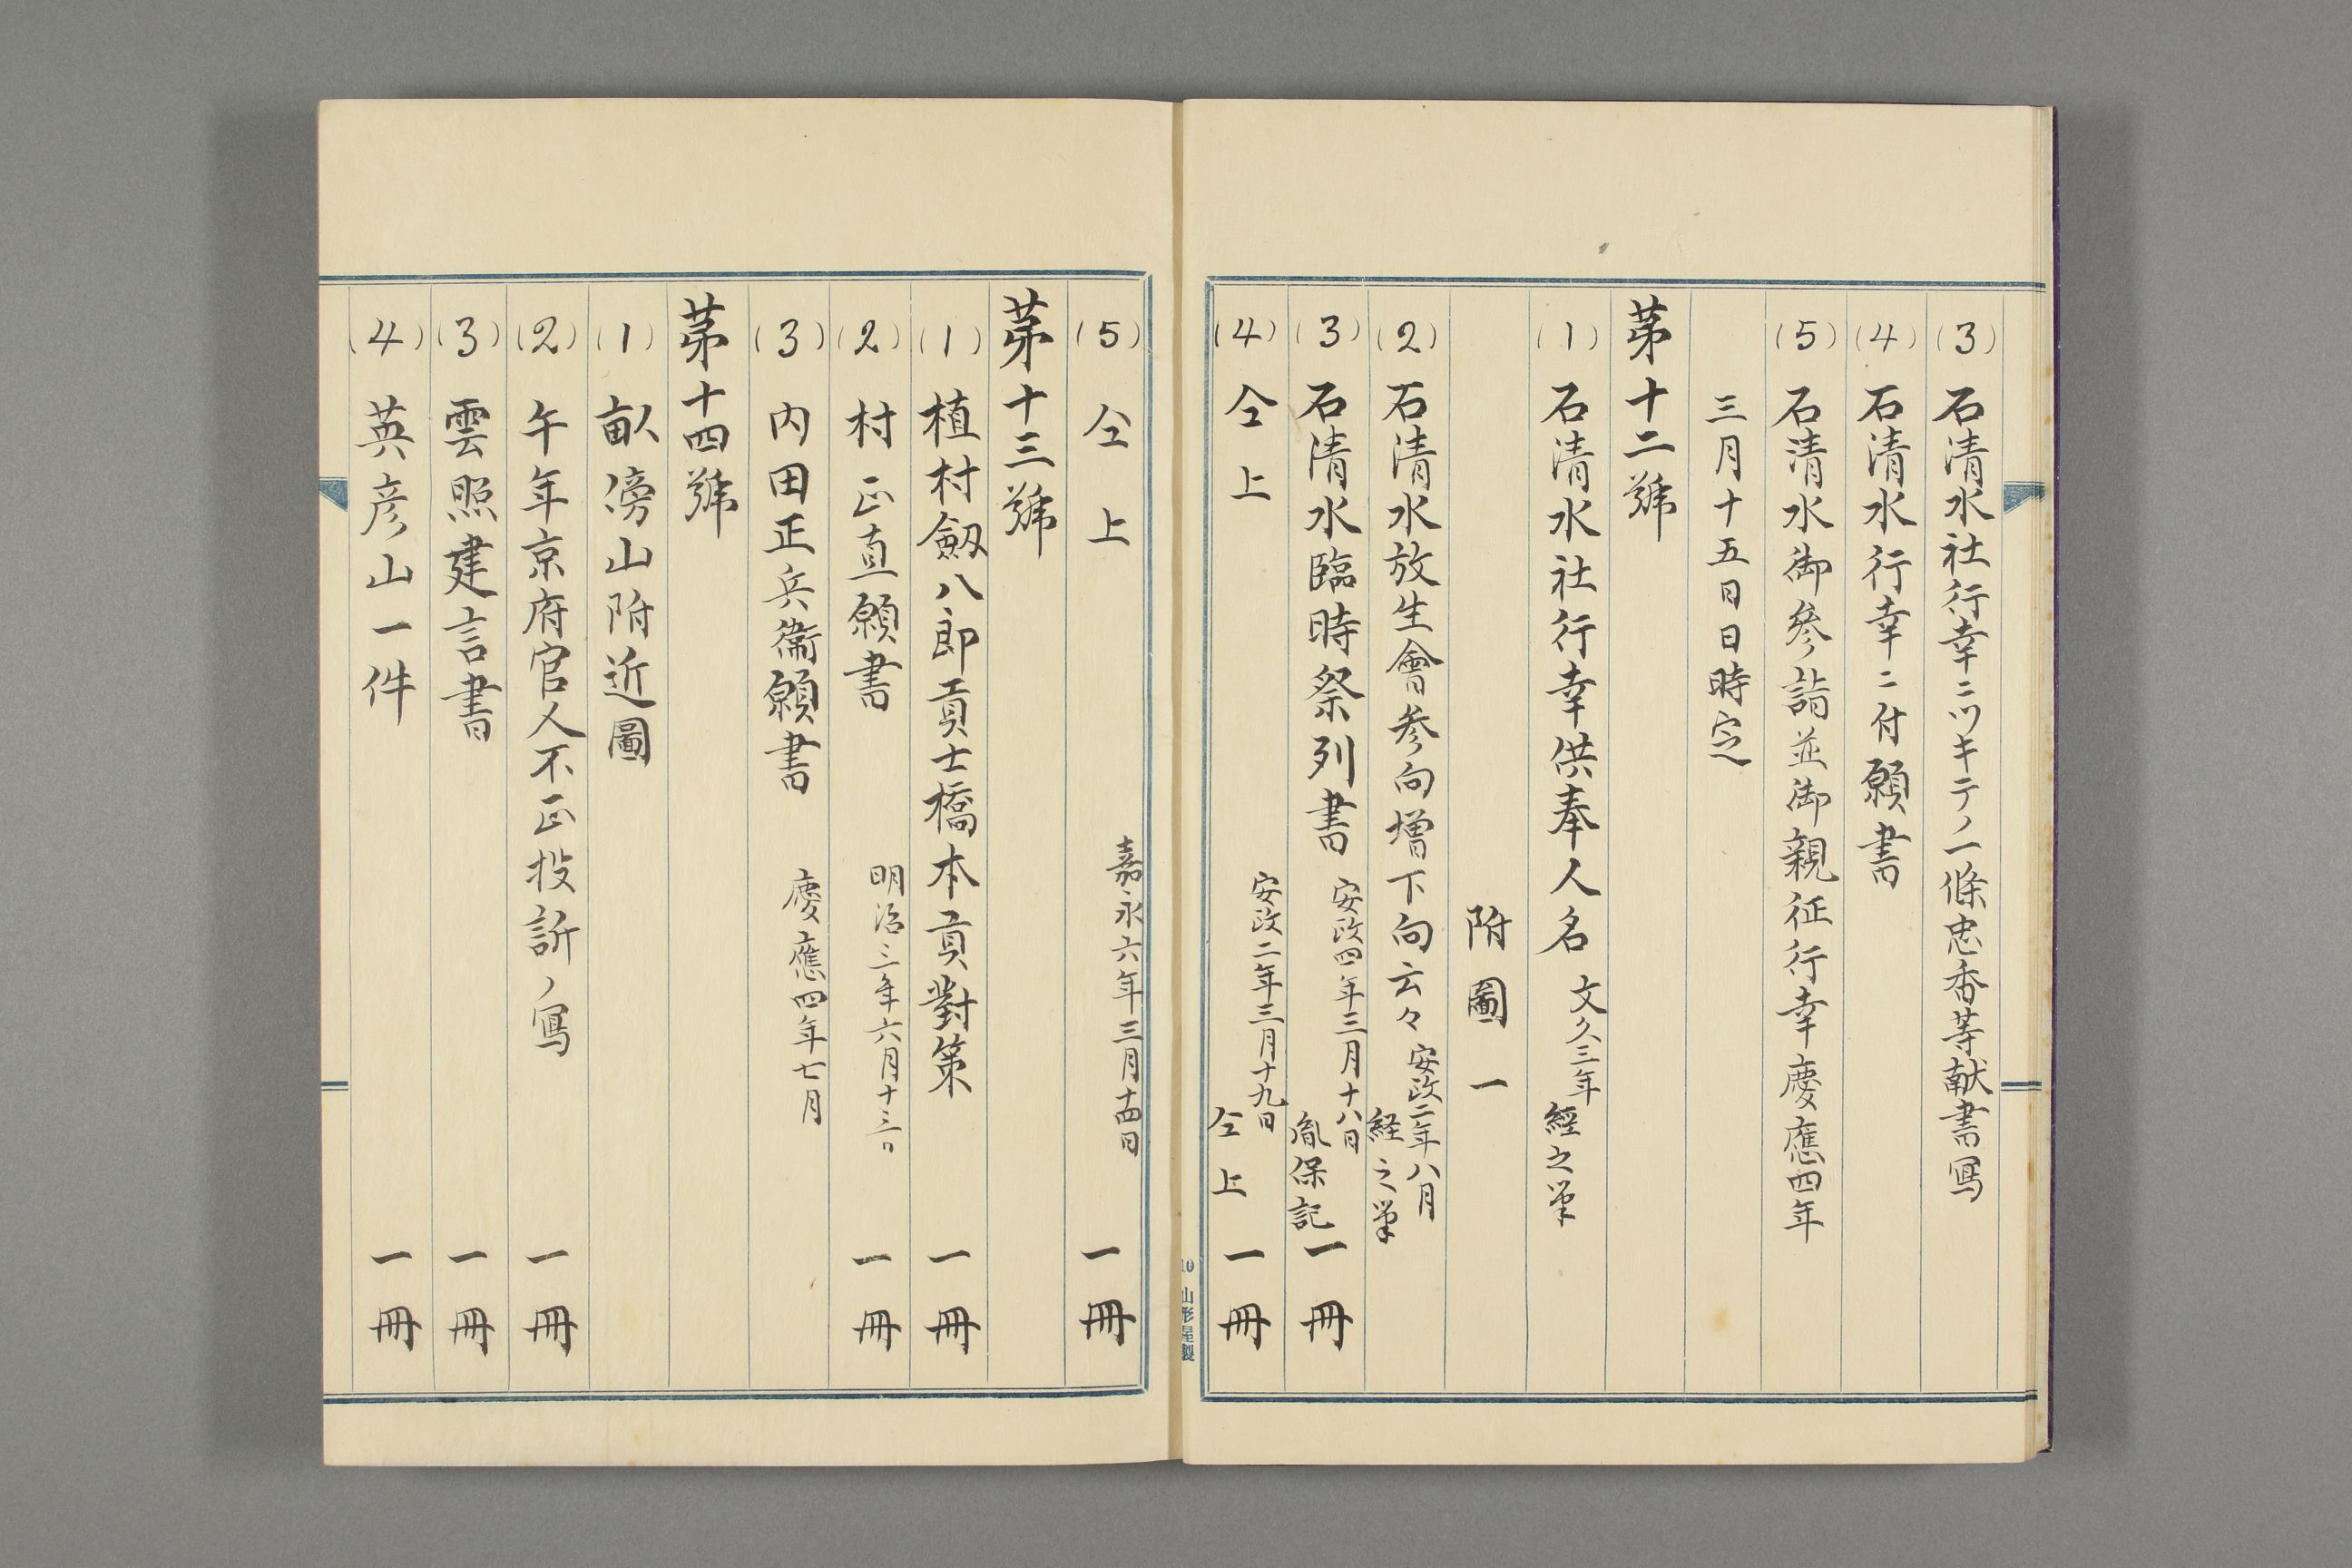 (3) 石清水社行幸ニツキテノ一條忠香等献書寫
(4) 石清水行幸ニ付願書
(5) 石清水御參詣並御親征行幸慶應四年
三月十五日日時定
第十二號
(1) 石清水社行幸供奉人名 文久三年 經之筆
附圖一
(2) 石清水放生會参向增下向云々 安政二年八月 経之筆
(3) 石清水臨時祭列書 安政四年三月十八日 胤保記 一冊
(4) 仝上 安政二年三月十九日 仝上 一冊
10 山形屋製
(5) 仝上 嘉永六年三月十四日 一冊
第十三號
(1) 植村劔八郎貢士橋本貢對策 一冊
(2) 村正直願書 明治三年六月十三日 一冊
(3) 内田正兵衞願書 慶應四年七月
第十四號
(1) 畝傍山附近圖
(2) 午年京府官人不正投訴ノ寫 一冊
(3) 雲照建言書 一冊
(4) 英彦山一件 一冊